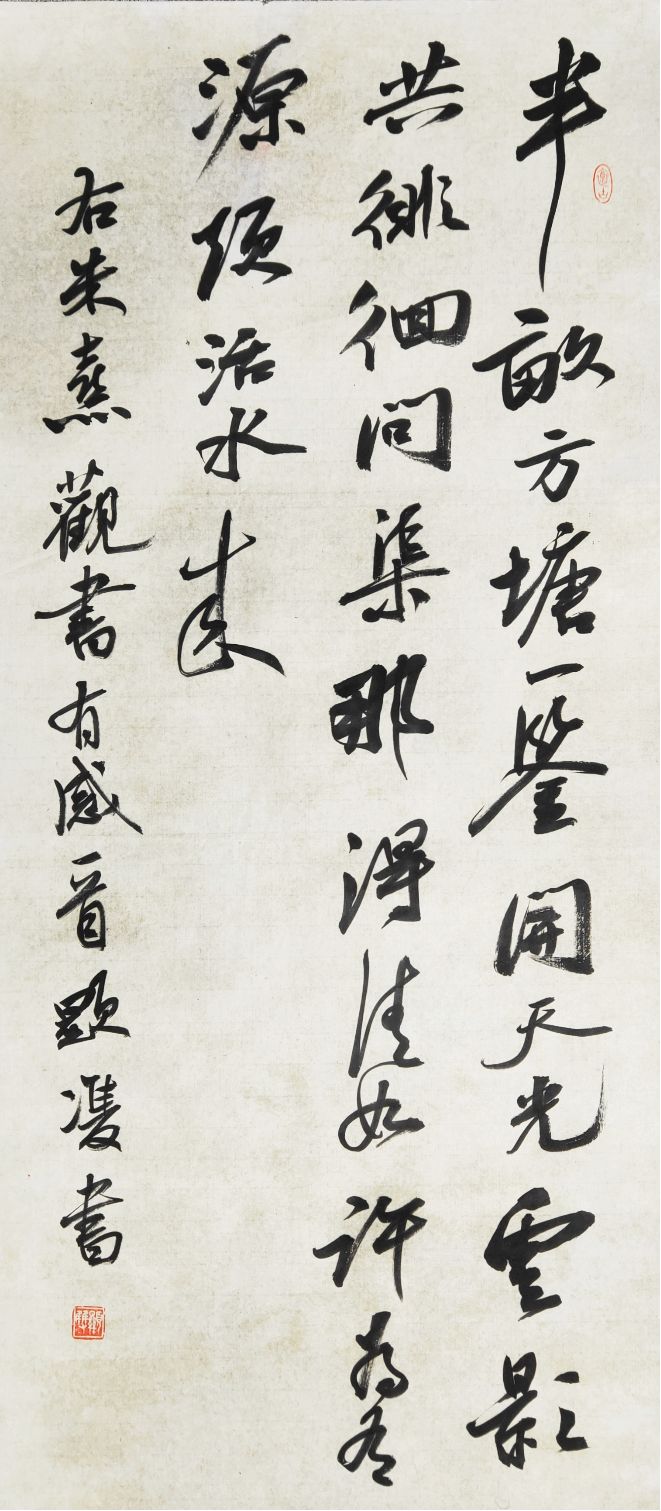 半畝方塘一鑒開天光雲影
共徘徊問渠那得清如許為有
源頭活水來
右朱熹觀書有感一首書